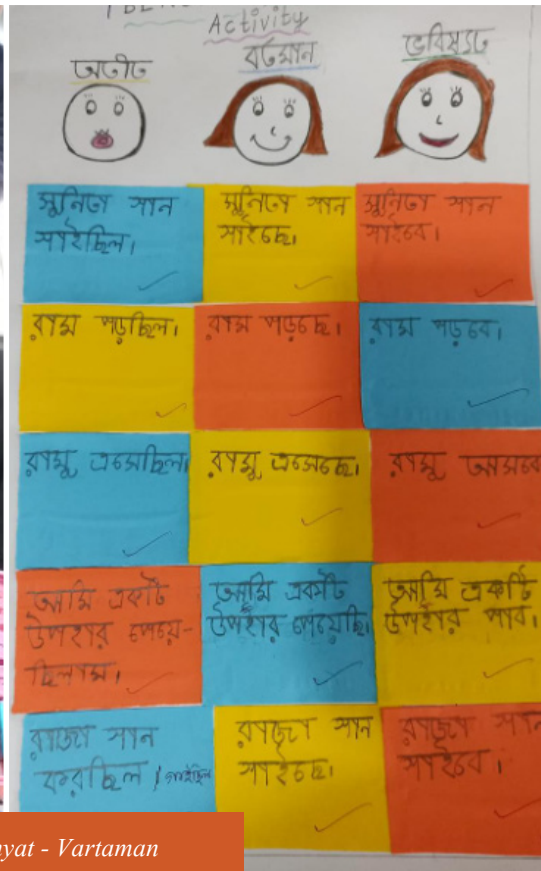 Activity
অতীত
বর্তমান
ভবিষ্যত
সুনিতা গান
গাইছিল।
সুনিতা গান
গাইছে।
সুনিতা গান
গাইবে।
রাম পড়ছিল।
রাম পড়ছে।
রাম পড়বে।
রামু এসেছিল।
রামু এসেছে।
রামু আসবে
আমি একটি
উপহার পেয়ে-
ছিলাম।
আমি একটি
উপহার পেয়েছি।
আমি একটি
উপহার পাব।
রাজা গান
করছিল / গাইছিল
রাজা গান
গাইছে।
রাজা গান
গাইবে।
yat - Vartaman